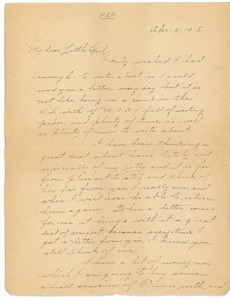 Apr. 8, 1918.
My dear Little Girl,
I only wished I had
enough to write about so I could
send you a letter every day but it is
not like being in a camp in the
U.S. with Y.M.C.A. full of writing
paper, and plenty of time, as well
as plenty of news to write about
I have been thinking a
great deal about home lately and
especially of my
far from pleasant to stop and think of
how far from you I really am, and
when I will ever be able to be
home again. To have a letter come
for me it brings with it a great
deal of comfort because every time I
get a letter from you, I know you
still think of me.
I have a bit of money now
which I am going to buy some
small souvenirs of France with, and